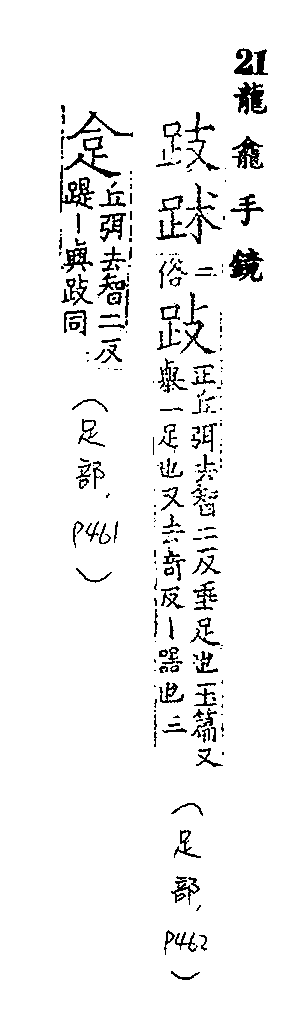 21龍龕手鏡
跂
二俗
跂
正丘弭去智二反垂足也玉篇又
舉一足也又去奇反丨器也三
（足部，P462）
丘弭去智二反
踶丨與跂同
（足部，P461）